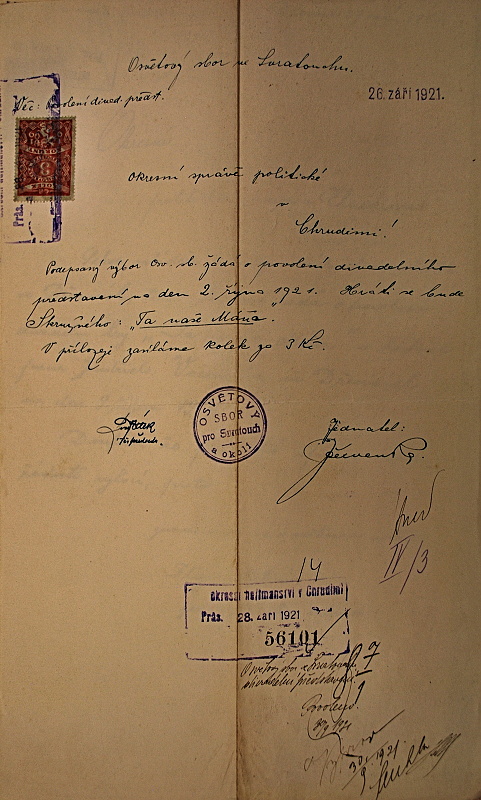 Osvětový sbor ve Svratouchu.
Věc: povolení divad. předst.
26. září 1921.
Okresní správě politické
v
Chrudimi!
Podepsaný výbor Osv. sb. žádá o povolení divadelního
představení na den 2. října 1921. Hráti se bude
Skružného: "Ta naše Máňa."
V příloze zasíláme kolek za 3 Kč.
OSVĚTOVÝ
SBOR
pro Svratouch
a okolí
Jednatel:
IV/3
14
okresní hejtmanství v Chrudimi
Prás. 28. září 1921
56101
Osvětový sbor
30/9 1921